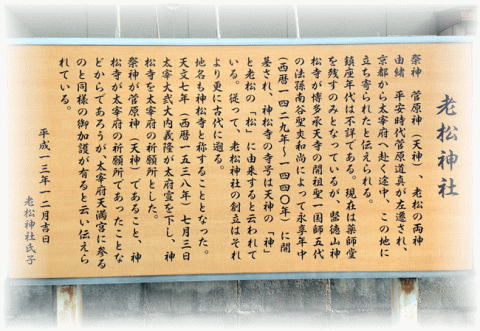 老松神社
祭神　菅原神（天神）、老松の両神
由緒　平安時代菅原道真が左遷され、
京都から太宰府へ赴く途中、この地に
立ち寄られたと伝えられる。
鎮座年代は不詳である。現在は薬師堂
を残すのみとなっているが、堅徳山神
松寺が博多承天寺の開祖聖一国師五代
の法孫南谷聖爽和尚によって永享年中
（西暦一四二九年～一四四〇年）に開
基され、神松寺の寺号は天神の「神」
と老松の「松」に由来すると云われて
いる。従って、老松神社の創立はそれ
より更に古代に遡る。
地名も神松寺と称することとなった。
天文七年（西暦一五三八年）七月三日
太宰大貳大内義隆が太府宣を下し、神
松寺を太宰府の祈願所とした。
祭神が菅原神（天神）であること、神
松寺が太宰府の祈願所であったことな
どからであろうが、太宰府天満宮に参る
のと同様の御加護が有ると云い伝えら
れている。
平成一三年一二月吉日
老松神社氏子